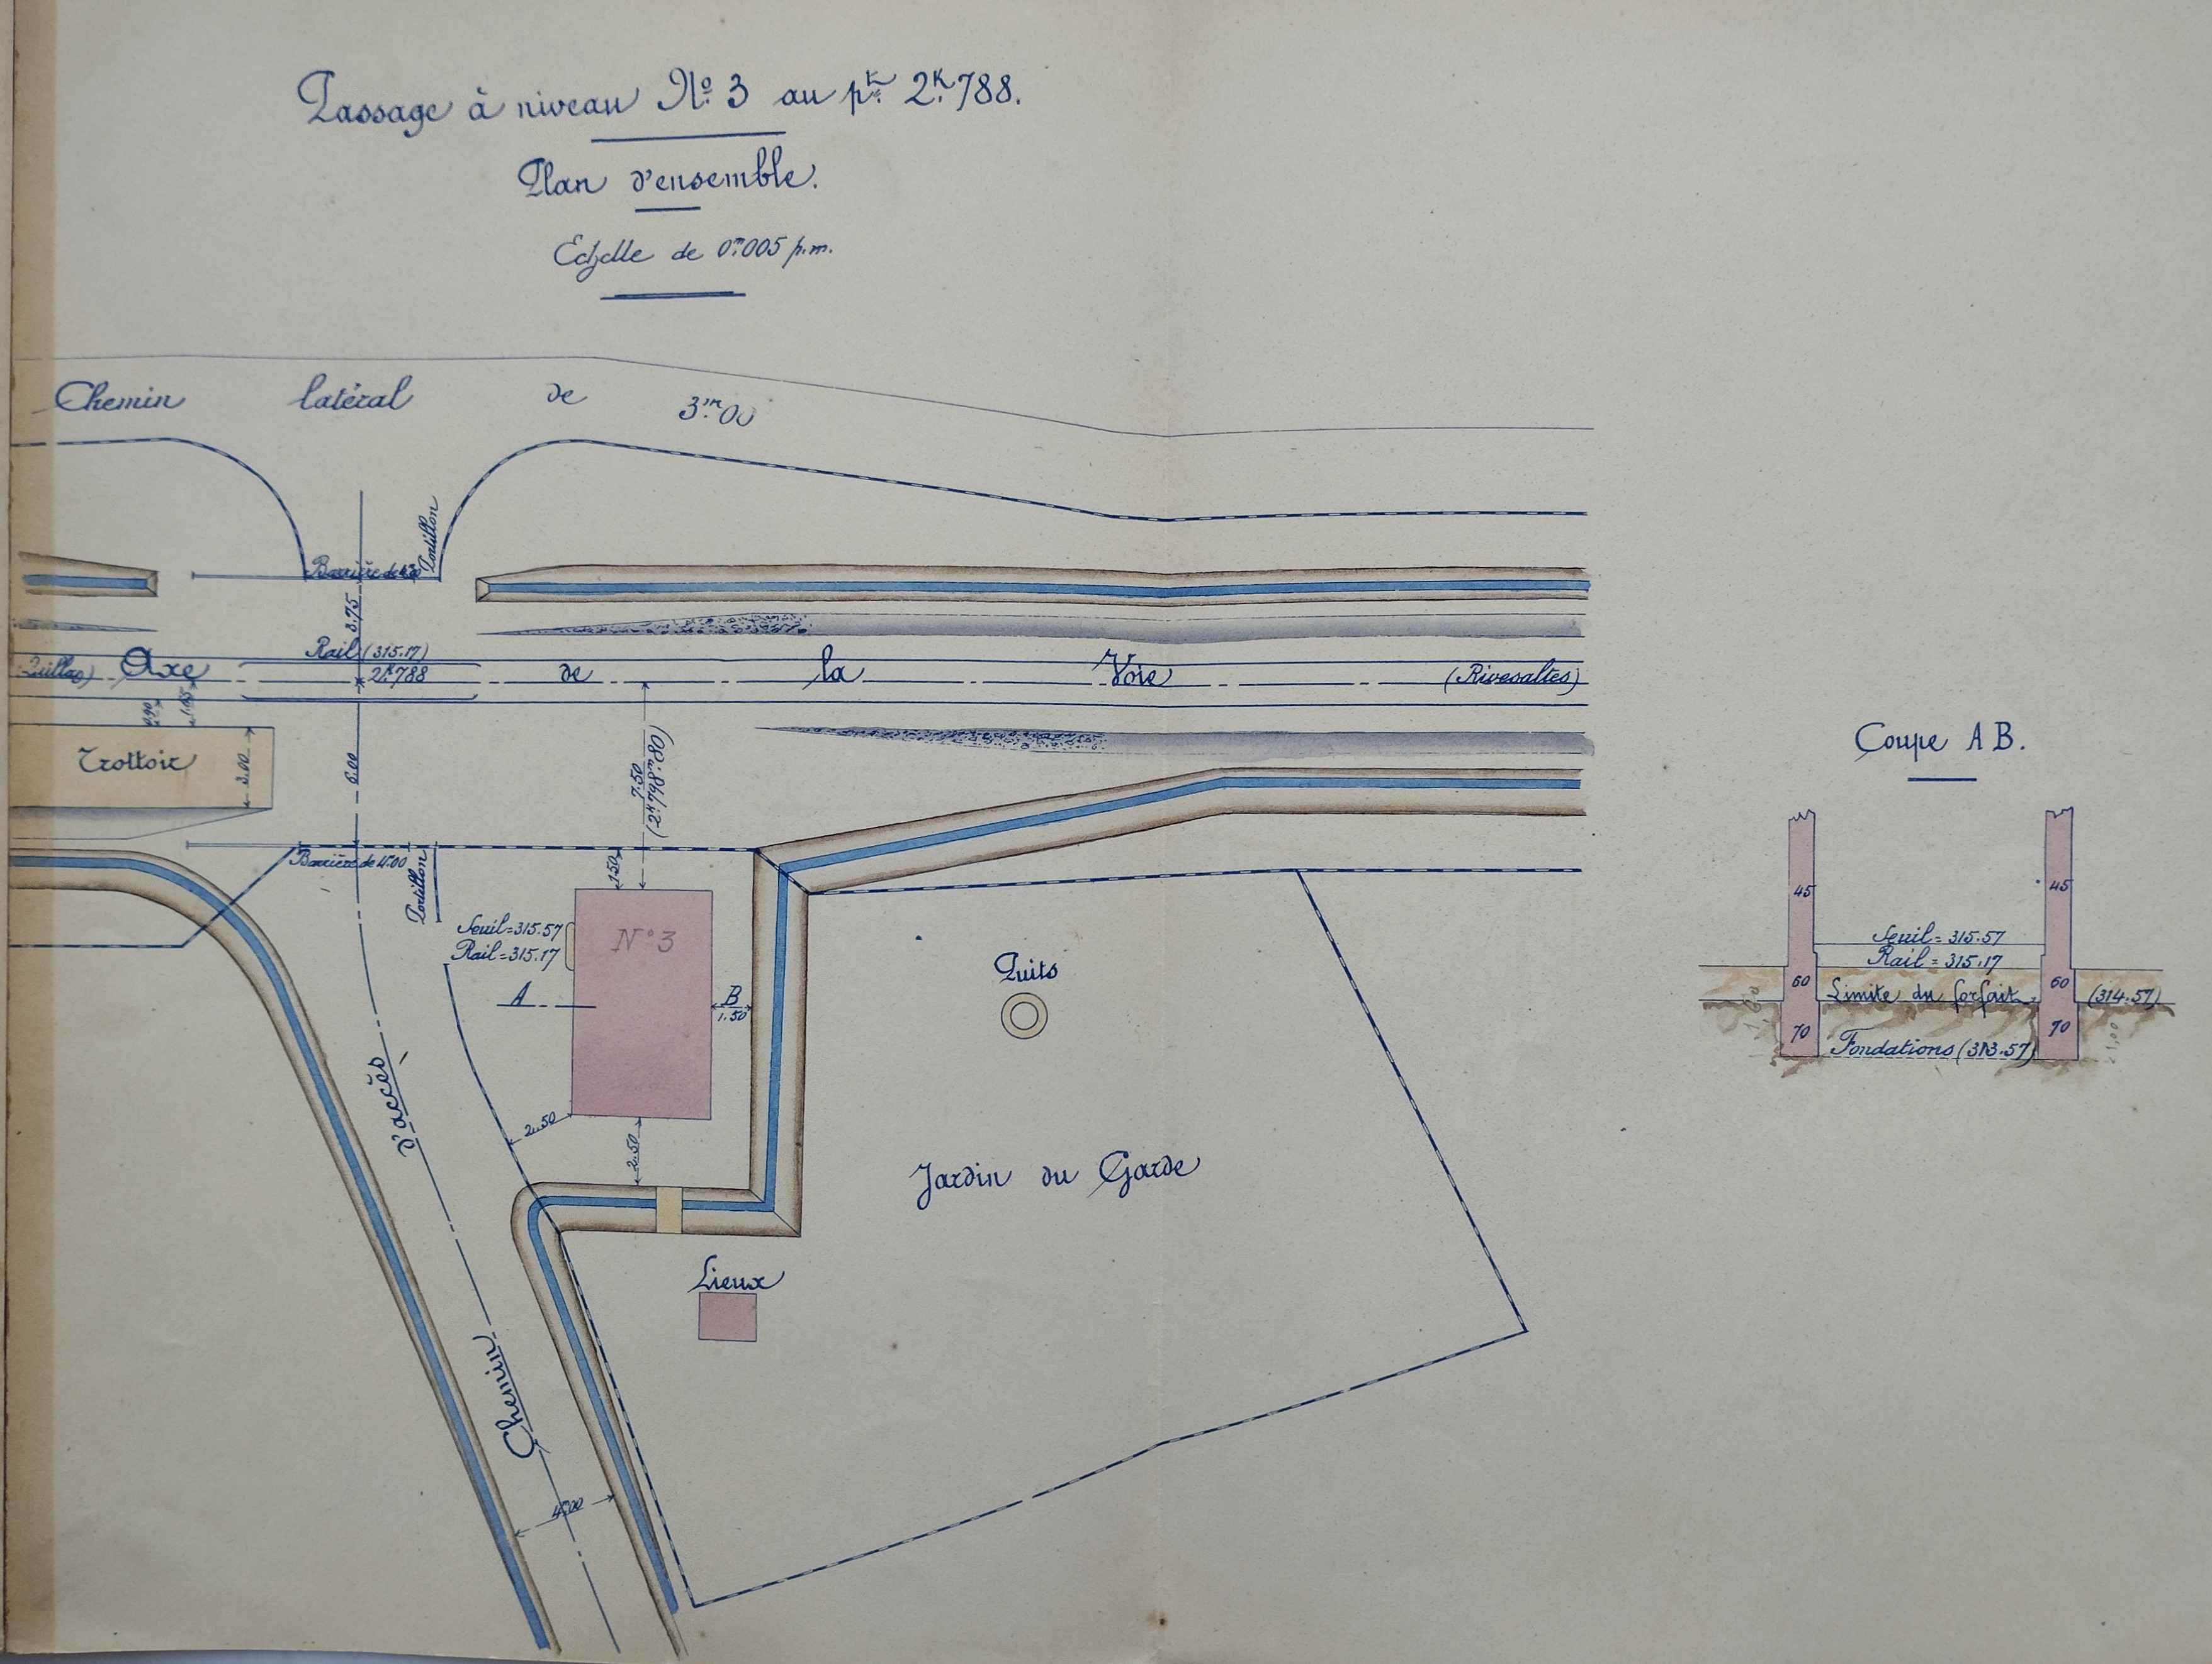 Passage à niveau Nº 3 au pt 2k.788.
Plan d'ensemble.
Echelle de 0m005 p.m.
Chemin latéral de 3m00
Portillon
Barrière de
3.75
Rail (315.17)
2k788
(Quillan) Axe de la Voie (Rivesaltes)
0.90
1.65
Trottoir
3.00
6.00
7.50
(2k798m80)
Barrière de 4m00
Portillon
1.50
Seuil=315.57
Rail=315.17
N°3
A
B
1.50
2.50
2.50
Puits
Jardin du Garde
Lieux
Chemin d'accès
4m00
Coupe AB.
45
45
Seuil = 315.57
Rail = 315.17
60
60
Limite du forfait (314.57)
70
70
Fondations (313.57)